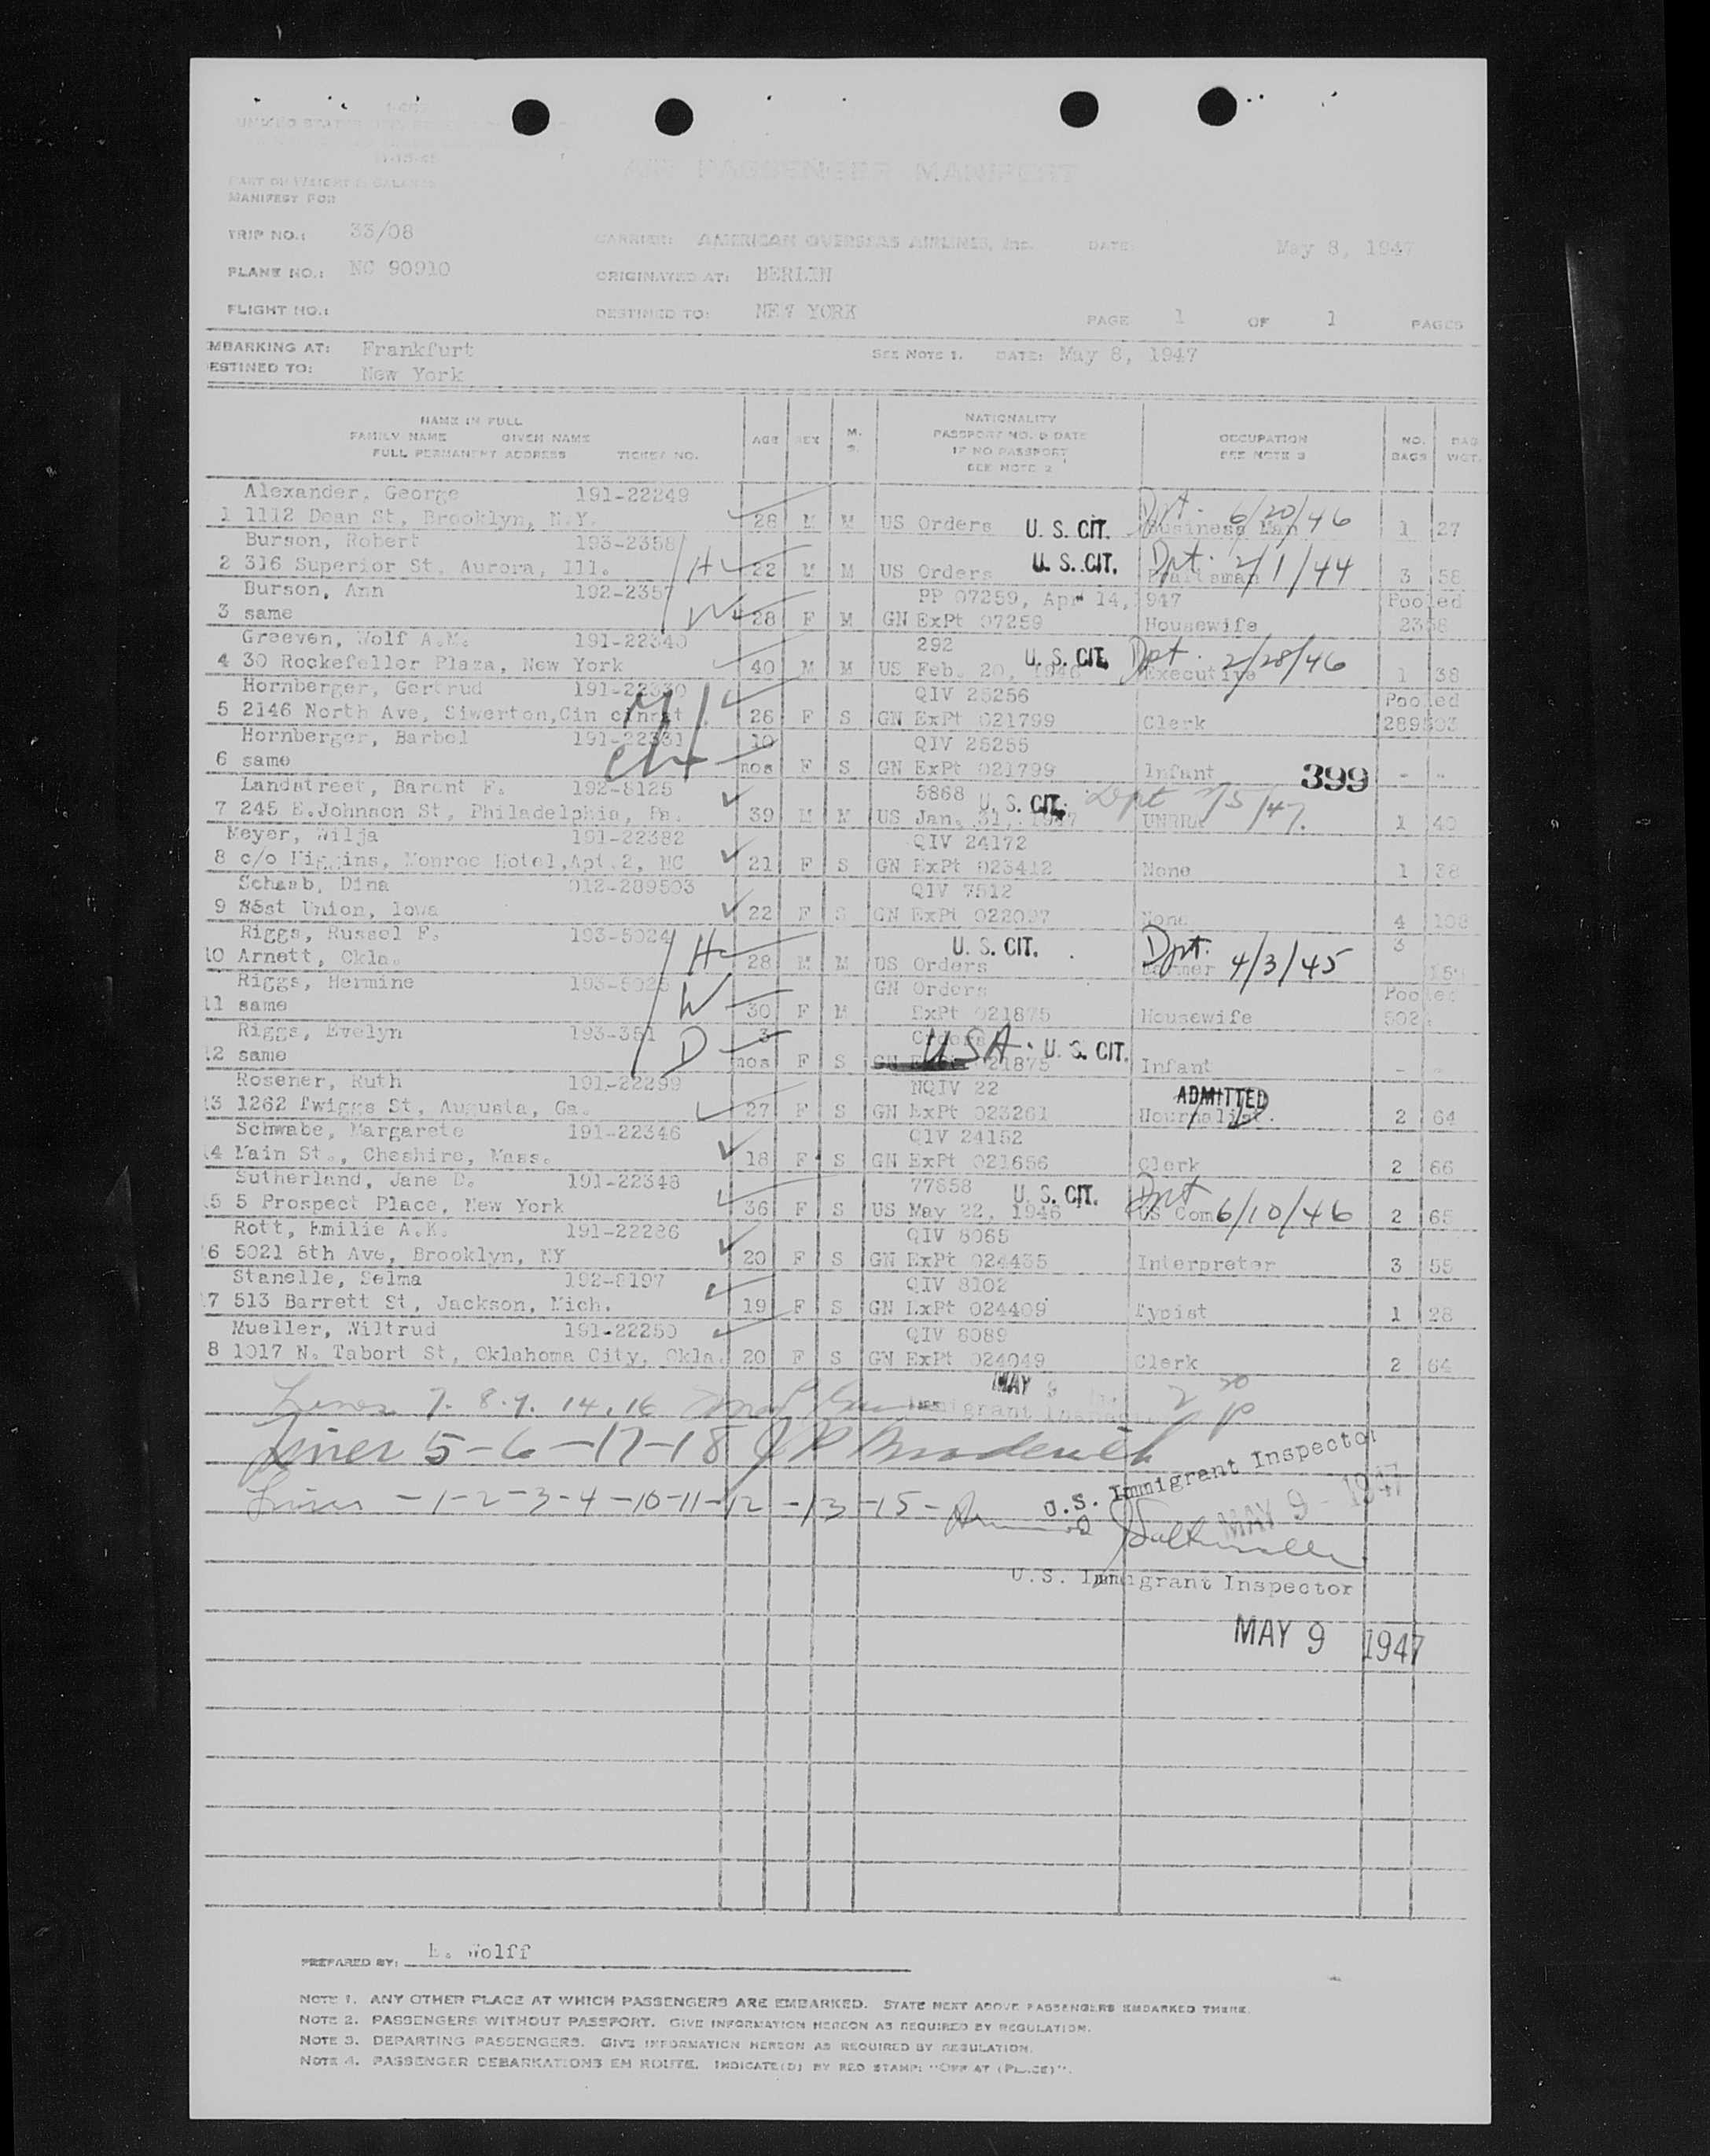 11-15-45
AIR PASSENGER MANIFEST
PART OF WEIGHT & BALANCE
MANIFEST FOR
TRIP NO.: 33/08 CARRIER: AMERICAN OVERSEAS AIRLINES, Inc. DATE: May 8, 1947
PLANE NO.: NC 90910 ORIGINATED AT: BERLIN
FLIGHT NO.: DESTINED TO: NEW YORK PAGE 1 OF 1 PAGES
EMBARKING AT: Frankfurt SEE NOTE 1. DATE: May 8, 1947
ESTINED TO: New York
NAME IN FULL NATIONALITY
FAMILY NAME GIVEN NAME AGE SEX M. S. PASSPORT NO. & DATE OCCUPATION NO. BAG
FULL PERMANENT ADDRESS TICKET NO. IF NO PASSPORT SEE NOTE 3 BAGS WGT.
SEE NOTE 2
Alexander, George 191-22249 Dpt. 6/20/46
1 1112 Dean St, Brooklyn, N.Y. 28 M M US Orders U. S. CIT. Business Man 1 27
Burson, Robert 193-2358 H U. S. CIT. Dpt. 2/1/44
2 316 Superior St, Aurora, Ill. 22 M M US Orders Draftsman 3 58
Burson, Ann 192-2357 W PP 07259, Apr 14, 947 Pooled
3 same 28 F M GN ExPt 07259 Housewife 2358
Greeven, Wolf A.M. 191-22340 292 U. S. CIT. Dpt. 2/28/46
4 30 Rockefeller Plaza, New York 40 M M US Feb. 20, 1946 Executive 1 38
Hornberger, Gertrud 191-22330 M QIV 25256 Pooled
5 2146 North Ave, Siwerton,Cin cinnat 26 F S GN ExPt 021799 Clerk 289503
Hornberger, Barbel 191-22331 ch 10 QIV 25255
6 same mos F S GN ExPt 021799 Infant 399 - -
Landstreet, Barent F. 192-8125 5868 U. S. CIT. Dpt 2/5/47.
7 245 E.Johnson St, Philadelphia, Pa. 39 M M US Jan. 31, 1947 UNRRA 1 40
Meyer, Wilja 191-22382 QIV 24172
8 c/o Higgins, Monroe Hotel,Apt.2, NC 21 F S GN ExPt 023412 None 1 38
Schaab, Dina 012-289503 QIV 7512
9 West Union, Iowa 22 F S GN ExPt 022097 None 4 108
Riggs, Russel F. 193-5024 H U. S. CIT. Dpt. 4/3/45 3
10 Arnett, Okla. 28 M M US Orders Farmer 159
Riggs, Hermine 193-5025 W GN Orders Pooled
11 same 30 F M ExPt 021875 Housewife 502
Riggs, Evelyn 193-351 D 3 Orders USA. U. S. CIT.
12 same mos F S GN 021875 Infant - -
Rosener, Ruth 191-22299 NQIV 22 ADMITTED
13 1262 Twiggs St, Augusta, Ga. 27 F S GN ExPt 023261 Journalist. 2 64
Schwabe, Margarete 191-22346 QIV 24152
14 Main St., Cheshire, Mass. 18 F S GN ExPt 021656 Clerk 2 66
Sutherland, Jane D. 191-22348 77658 U. S. CIT. Dpt 6/10/46
15 5 Prospect Place, New York 36 F S US May 22, 1946 US Com 2 65
Rott, Emilie A.K. 191-22286 QIV 8065
16 5021 8th Ave, Brooklyn, NY 20 F S GN ExPt 024435 Interpreter 3 55
Stanelle, Selma 192-8197 QIV 8102
17 513 Barrett St, Jackson, Mich. 19 F S GN ExPt 024409 Typist 1 28
Mueller, Wiltrud 191-22250 QIV 8089
18 1017 N. Tabort St, Oklahoma City, Okla. 20 F S GN ExPt 024049 Clerk 2 64
MAY 9
Lines 7. 8. 9. 14. 16 Immigrant Inspector
Lines 5-6-17-18 J P Broderick
U.S. Immigrant Inspector
MAY 9 - 1947
Lines -1-2-3-4-10-11-12-13-15-
U.S. Immigrant Inspector
MAY 9 1947
PREPARED BY: E. Wolff
NOTE 1. ANY OTHER PLACE AT WHICH PASSENGERS ARE EMBARKED. STATE NEXT ABOVE PASSENGERS EMBARKED THERE.
NOTE 2. PASSENGERS WITHOUT PASSPORT. GIVE INFORMATION HEREON AS REQUIRED BY REGULATION.
NOTE 3. DEPARTING PASSENGERS. GIVE INFORMATION HEREON AS REQUIRED BY REGULATION.
NOTE 4. PASSENGER DEBARKATIONS EN ROUTE. INDICATE(D) BY RED STAMP: "OFF AT (PLACE)".